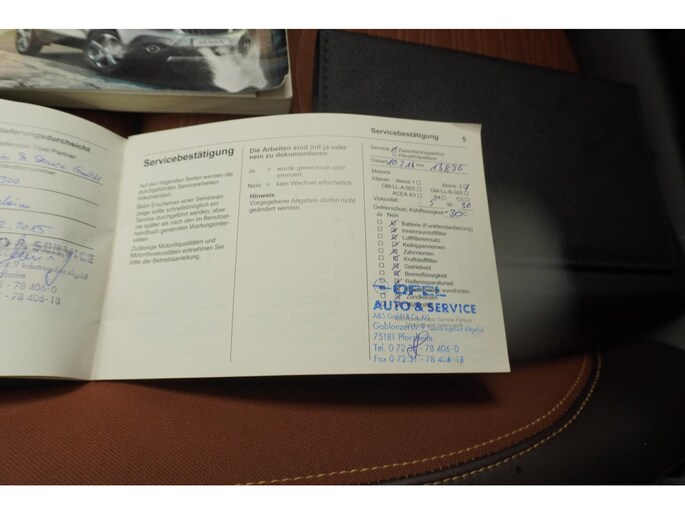 Servicebestätigung
Auf den folgenden Seiten werden die
durchgeführten Servicearbeiten
dokumentiert.
Beim Erscheinen einer Servicean-
zeige sollte schnellstmöglich ein
Service durchgeführt werden, aber
nie später als nach den im Benutzer-
handbuch genannten Wartungsinter-
vallen.
Zulässige Motorölqualitäten und
Motorölviskositäten entnehmen Sie
bitte der Betriebsanleitung.
Die Arbeiten sind mit ja oder
nein zu dokumentieren
Ja = wurde gewechselt oder
erneuert
Nein = kein Wechsel erforderlich
Hinweis
Vorgegebene Abgaben dürfen nicht
geändert werden.
Servicebestätigung 5
Service Zwischeninspektion
Hauptinspektion
Datum km
Motoröl
Klasse dexos 1 dexos 2
GM-LL-A-025 GM-LL-B-025
ACEA A3 B4 C3
Viskosität 5 W 30
Gefrierschutz, Kühlflüssigkeit -30
Ja Nein
Batterie (Funkfernbedienung)
Innenraumluftfilter
Luftfiltereinsatz
Keilrippenriemen
Zahnriemen
Kraftstofffilter
Getriebeöl
Bremsflüssigkeit
Reifenreparaturset
Zündkerzen
OPEL
AUTO & SERVICE
A&S GmbH & Co. KG
75181 Pforzheim
Tel. 0 72 31 - 78 406-0
Fax 0 72 31 - 78 406-18
2015
& SERVICE
78 406-0
78 406-18